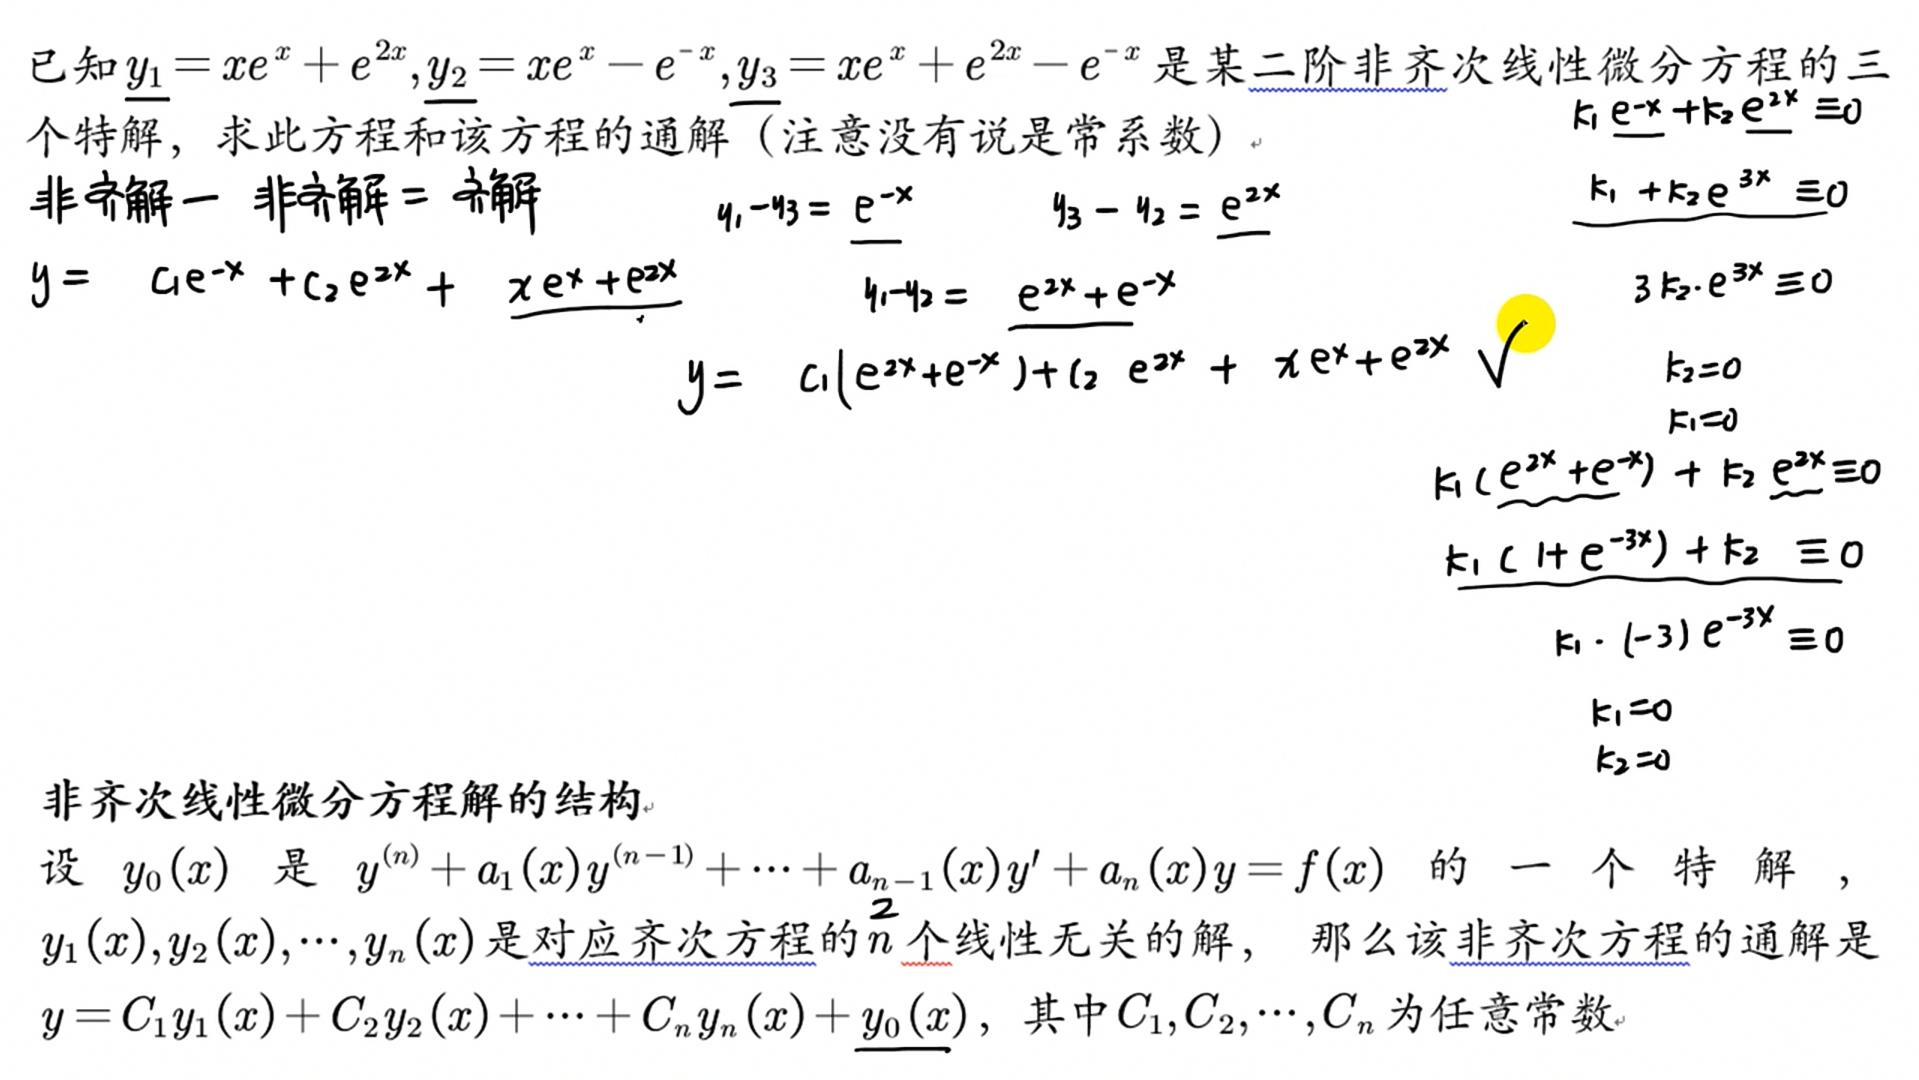 已知y₁ = xeˣ + e²ˣ, y₂ = xeˣ − e⁻ˣ, y₃ = xeˣ + e²ˣ − e⁻ˣ 是某二阶非齐次线性微分方程的三
个特解，求此方程和该方程的通解（注意没有说是常系数）
非齐解 − 非齐解 = 齐解
y₁−y₃ = e⁻ˣ
y₃ − y₂ = e²ˣ
y = C₁e⁻ˣ + C₂e²ˣ + xeˣ + e²ˣ
y₁−y₂ = e²ˣ + e⁻ˣ
y = C₁(e²ˣ+e⁻ˣ) + C₂ e²ˣ + xeˣ + e²ˣ √
k₁e⁻ˣ + k₂e²ˣ ≡ 0
k₁ + k₂e³ˣ ≡ 0
3k₂·e³ˣ ≡ 0
k₂=0
k₁=0
k₁(e²ˣ + e⁻ˣ) + k₂ e²ˣ ≡ 0
k₁(1 + e⁻³ˣ) + k₂ ≡ 0
k₁·(−3)e⁻³ˣ ≡ 0
k₁=0
k₂=0
非齐次线性微分方程解的结构
设 y₀(x) 是 y⁽ⁿ⁾ + a₁(x)y⁽ⁿ⁻¹⁾ + ⋯ + aₙ₋₁(x)y′ + aₙ(x)y = f(x) 的一个特解，
2
y₁(x), y₂(x), ⋯, yₙ(x)是对应齐次方程的n个线性无关的解， 那么该非齐次方程的通解是
y = C₁y₁(x) + C₂y₂(x) + ⋯ + Cₙyₙ(x) + y₀(x)，其中C₁, C₂, ⋯, Cₙ为任意常数